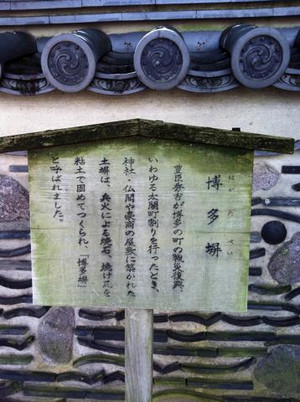 博多塀
はかたべい
豊臣秀吉が博多の町の戦災復興、
いわゆる太閤町割りを行ったとき、
神社・仏閣や豪商の屋敷に築かれた
土塀は、兵火による焼石、焼け瓦を
粘土で固めてつくられ、「博多塀」
と呼ばれました。